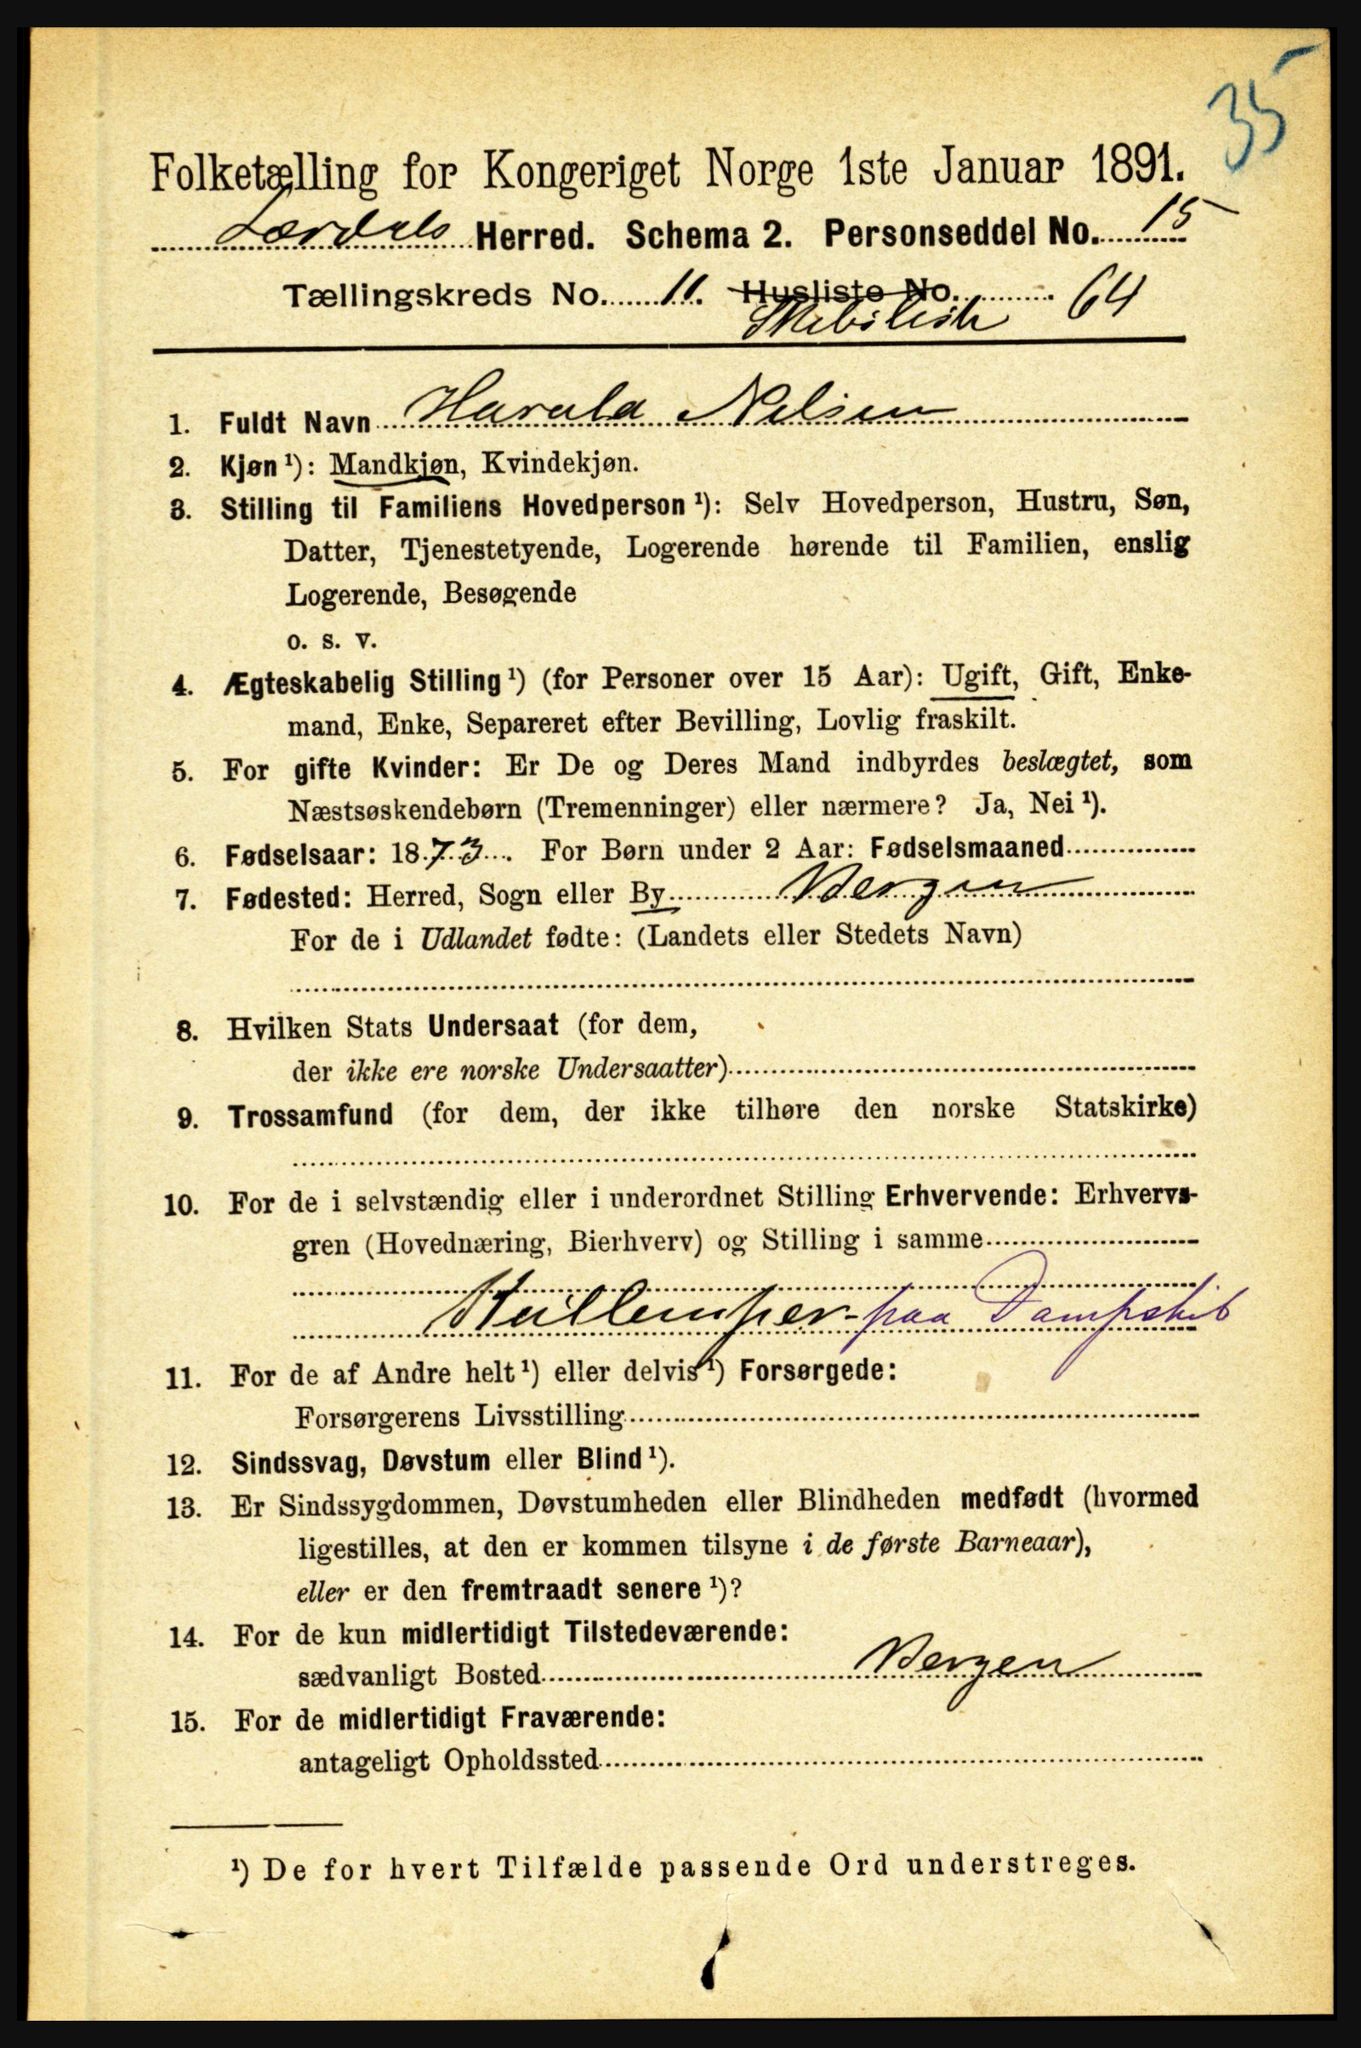 35
Folketælling for Kongeriget Norge 1ste Januar 1891.
Lærdals Herred. Schema 2. Personseddel No. 15
Tællingskreds No. 11. Husliste No. 64
Skibsliste
1. Fuldt Navn Harald Nilsen
2. Kjøn ¹): Mandkjøn, Kvindekjøn.
3. Stilling til Familiens Hovedperson ¹): Selv Hovedperson, Hustru, Søn,
Datter, Tjenestetyende, Logerende hørende til Familien, enslig
Logerende, Besøgende
o. s. v.
4. Ægteskabelig Stilling ¹) (for Personer over 15 Aar): Ugift, Gift, Enke-
mand, Enke, Separeret efter Bevilling, Lovlig fraskilt.
5. For gifte Kvinder: Er De og Deres Mand indbyrdes beslægtet, som
Næstsøskendebørn (Tremenninger) eller nærmere? Ja, Nei ¹).
6. Fødselsaar: 1873. For Børn under 2 Aar: Fødselsmaaned
7. Fødested: Herred, Sogn eller By Bergen
For de i Udlandet fødte: (Landets eller Stedets Navn)
8. Hvilken Stats Undersaat (for dem,
der ikke ere norske Undersaatter)
9. Trossamfund (for dem, der ikke tilhøre den norske Statskirke)
10. For de i selvstændig eller i underordnet Stilling Erhvervende: Erhvervs-
gren (Hovednæring, Bierhverv) og Stilling i samme
Kullemper paa Dampskib
11. For de af Andre helt ¹) eller delvis ¹) Forsørgede:
Forsørgerens Livsstilling
12. Sindssvag, Døvstum eller Blind ¹).
13. Er Sindssygdommen, Døvstumheden eller Blindheden medfødt (hvormed
ligestilles, at den er kommen tilsyne i de første Barneaar),
eller er den fremtraadt senere ¹)?
14. For de kun midlertidigt Tilstedeværende:
sædvanligt Bosted Bergen
15. For de midlertidigt Fraværende:
antageligt Opholdssted
¹) De for hvert Tilfælde passende Ord understreges.